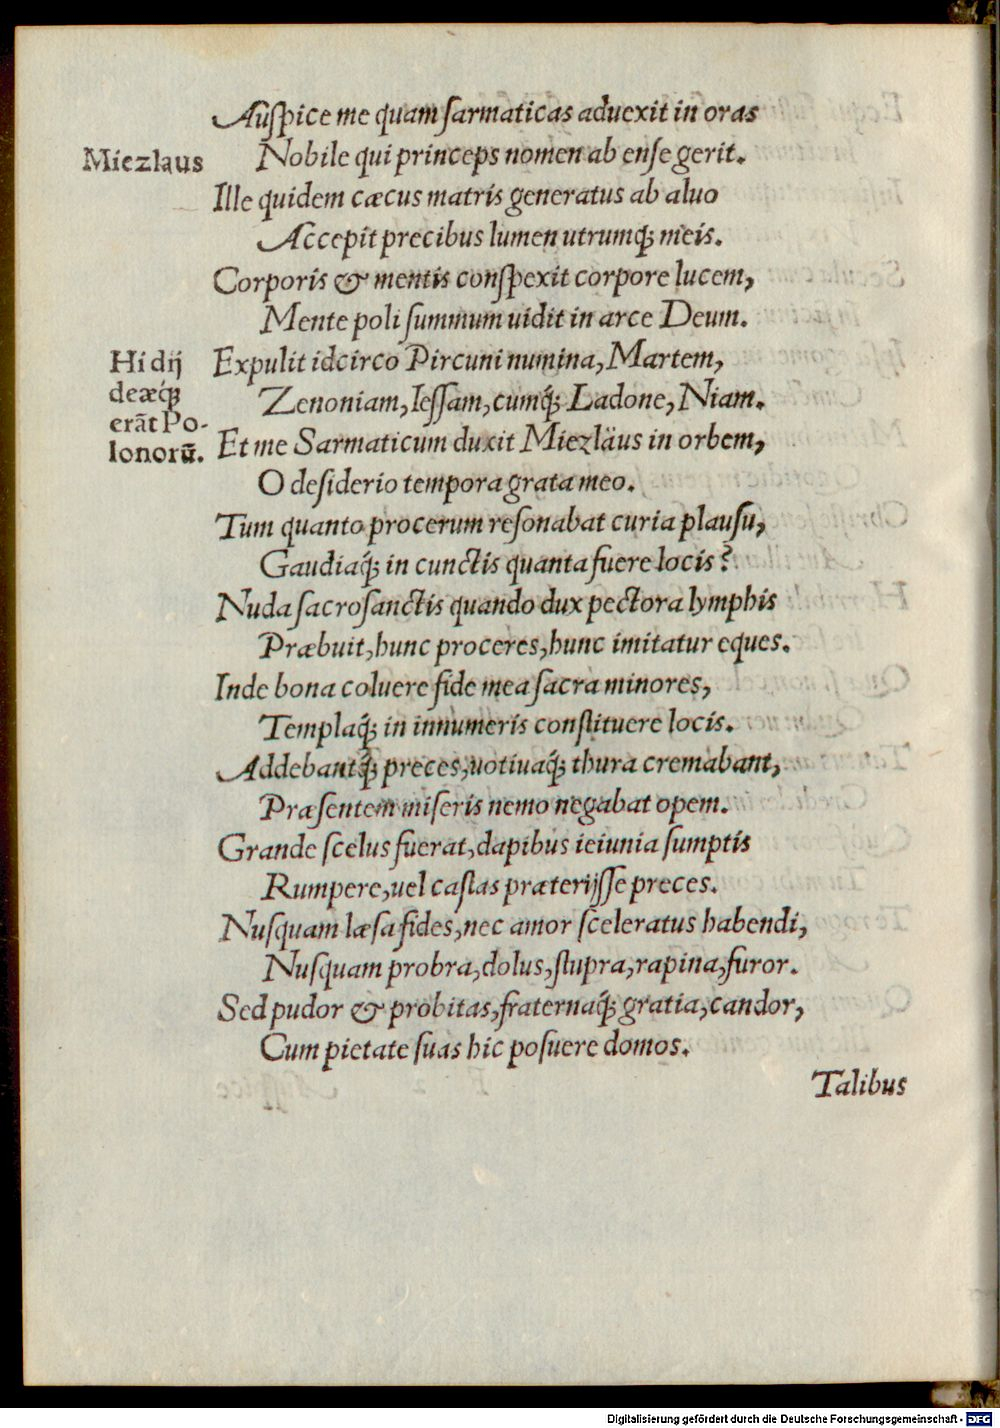 Auſpice me quam ſarmaticas aduexit in oras
Miezlaus
Nobile qui princeps nomen ab enſe gerit.
Ille quidem cæcus matris generatus ab aluo
Accepit precibus lumen utrumq́; meis.
Corporis & mentis conſpexit corpore lucem,
Mente poli ſummum uidit in arce Deum.
Hi dij
deæq́;
erāt Po-
lonorū.
Expulit idcirco Pircuni numina, Martem,
Zenoniam, Ieſſam, cumq́; Ladone, Niam.
Et me Sarmaticum duxit Miezläus in orbem,
O deſiderio tempora grata meo.
Tum quanto procerum reſonabat curia plauſu,
Gaudiaq́; in cunctis quanta fuere locis?
Nuda ſacroſanctis quando dux pectora lymphis
Præbuit, hunc proceres, hunc imitatur eques.
Inde bona coluere fide mea ſacra minores,
Templaq́; in innumeris conſtituere locis.
Addebantq́; preces, uotiuaq́; thura cremabant,
Præſentem miſeris nemo negabat opem.
Grande ſcelus fuerat, dapibus ieiunia ſumptis
Rumpere, uel caſtas præterijſſe preces.
Nuſquam læſa fides, nec amor ſceleratus habendi,
Nuſquam probra, dolus, ſtupra, rapina, furor.
Sed pudor & probitas, fraternaq́; gratia, candor,
Cum pietate ſuas hic poſuere domos.
Talibus
Digitalisierung gefördert durch die Deutsche Forschungsgemeinschaft - DFG